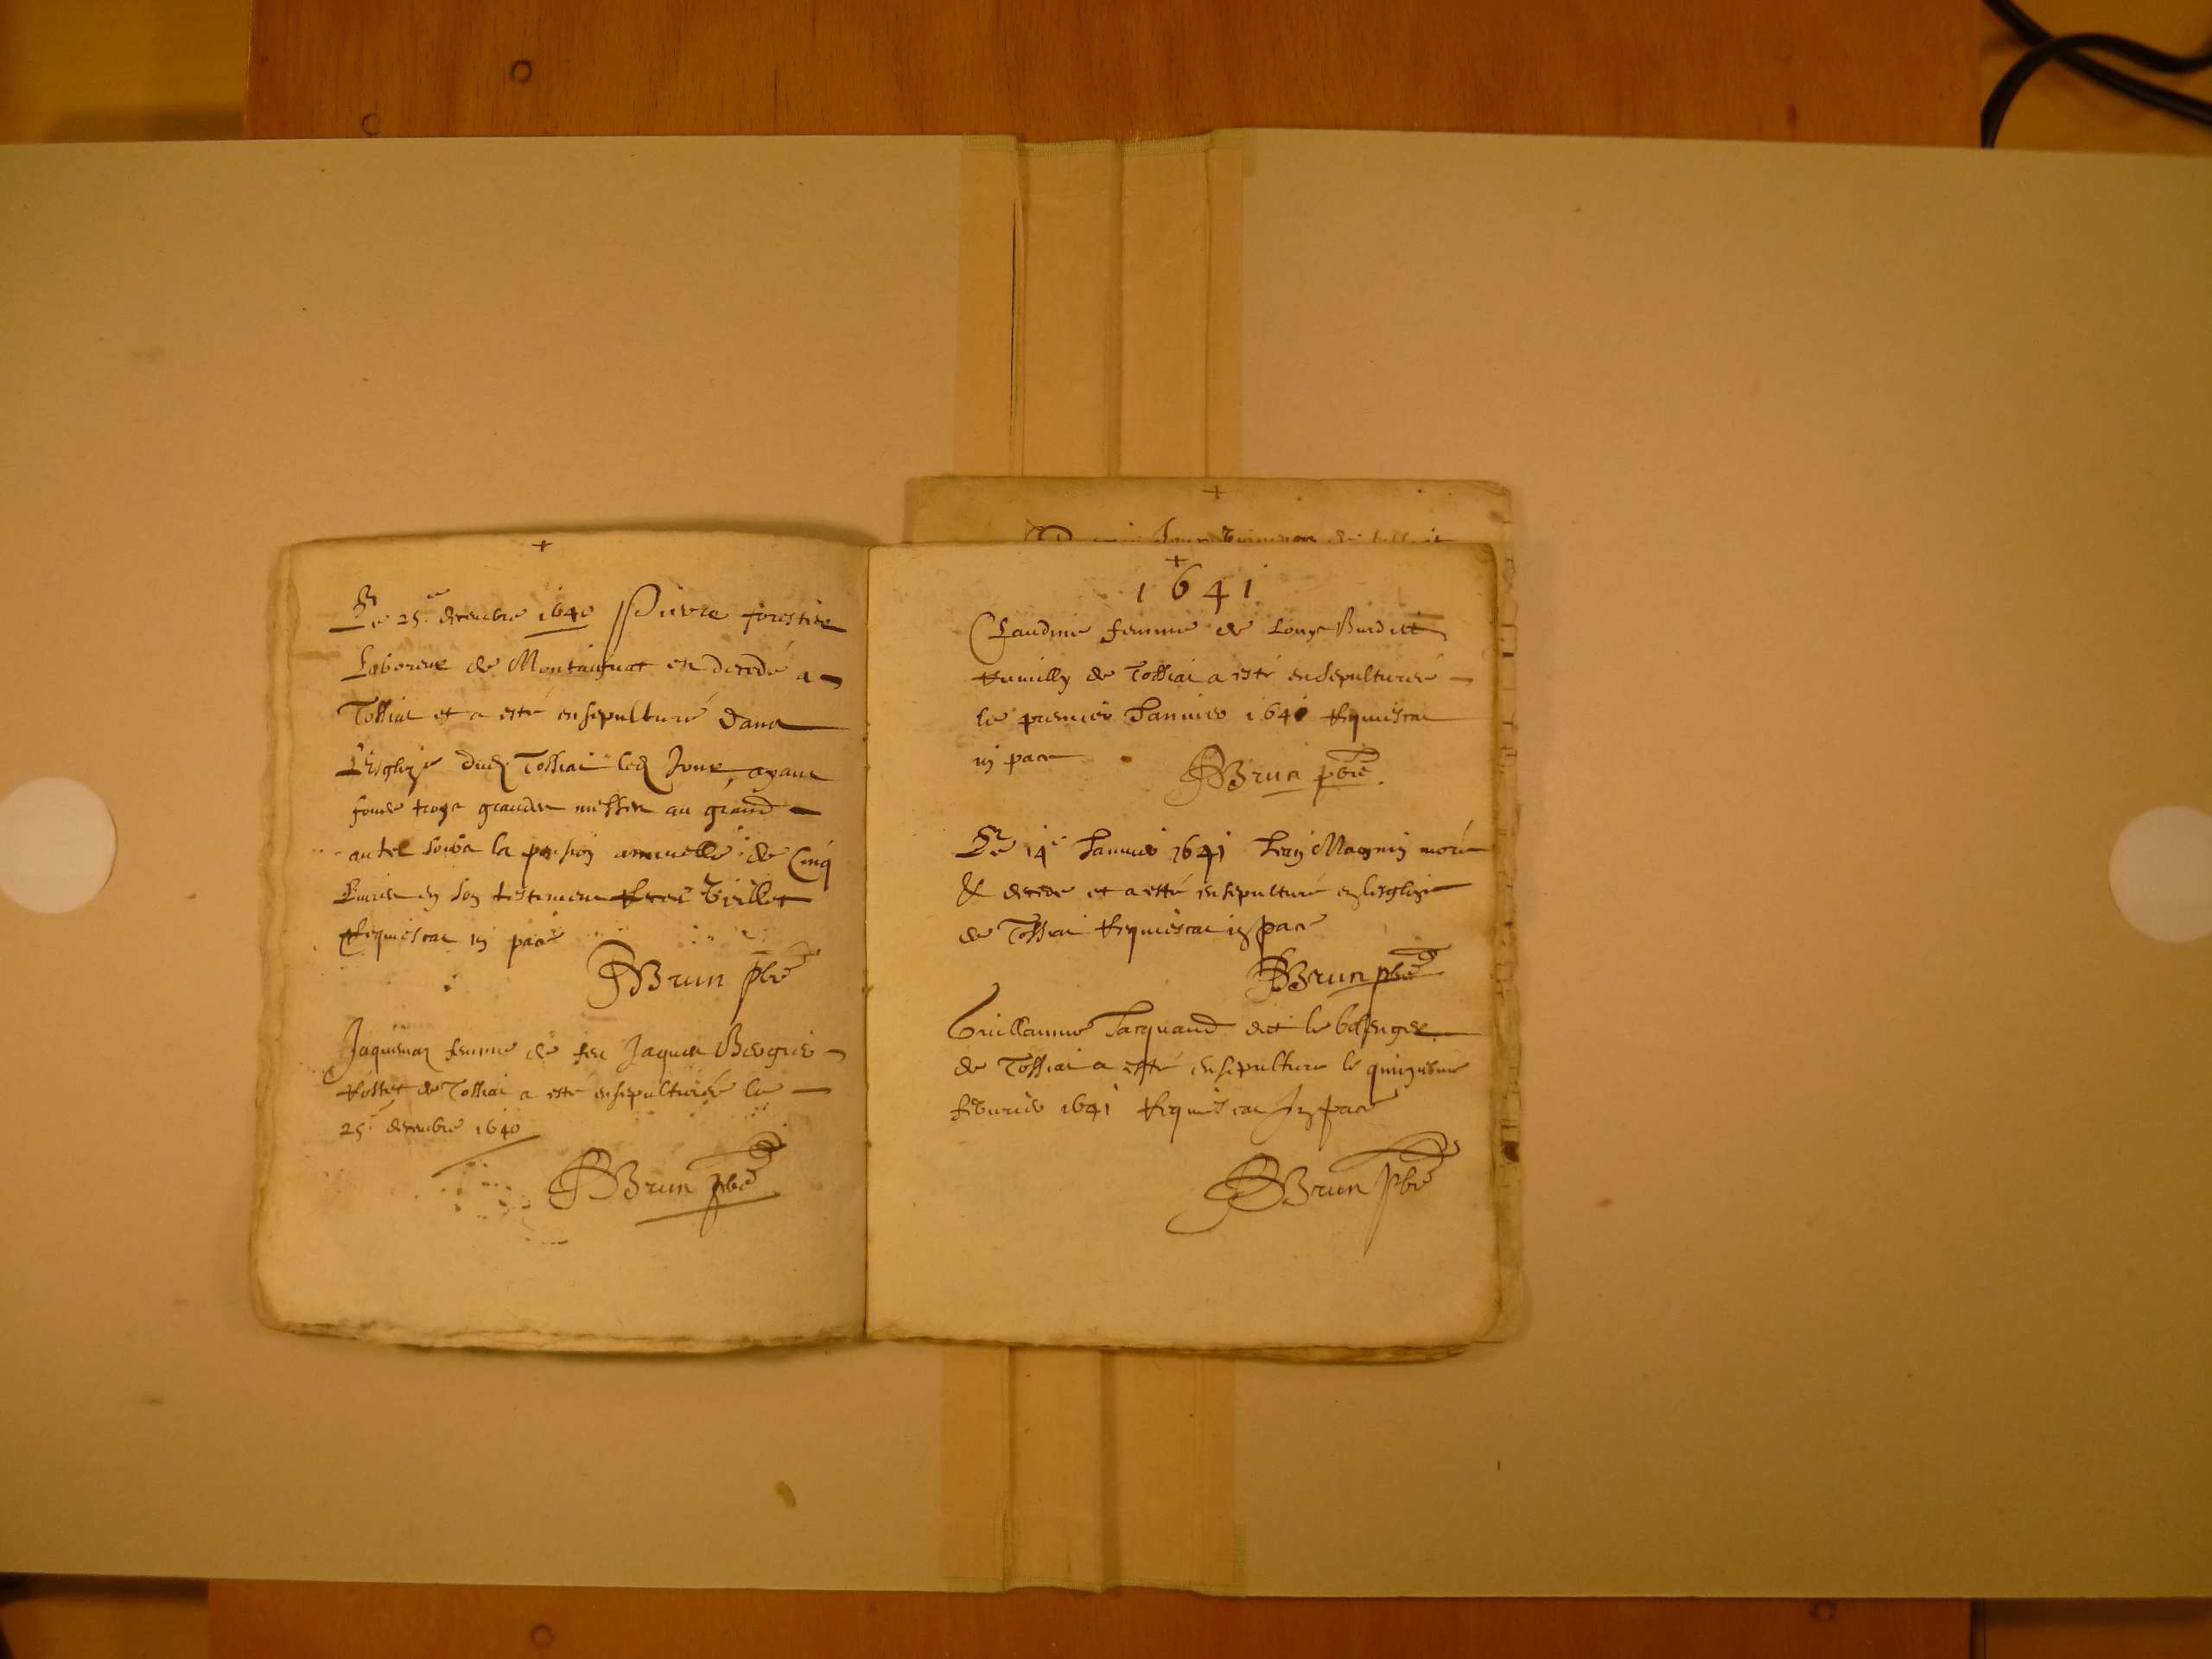 +
Le 25.e decembre 1640 Pierre forestier
Laboreur de Montaignat est decedé a
Tossiat et a esté ensepulturé dans
L'esglize dud Tossiat led Jour, ayant
fonde troys grandes messes au grand
autel soubz la pension annuelle de Cinq
Livres en son testament
Requiescat in pace
Brun pbre
Jaquemaz femme de feu Jaques Bergier
de Tossiat a esté ensepulturée le
25.e decembre 1640
Brun pbre
+
1641
Claudine femme de Louys
de Tossiat a esté ensepulturée
le premier Januier 1641 Requiescat
in pace
Brun pbre.
Le 14e Januier 1641 Jean Magnin
decede et a esté ensepulturé en lesglize
de Tossiat Requiescat in pace
Brun pbre
Guillaume Jacquand dit le bolenger
de Tossiat a esté ensepulture le quinziesme
feburier 1641 Requiescat In pace
Brun pbre
+